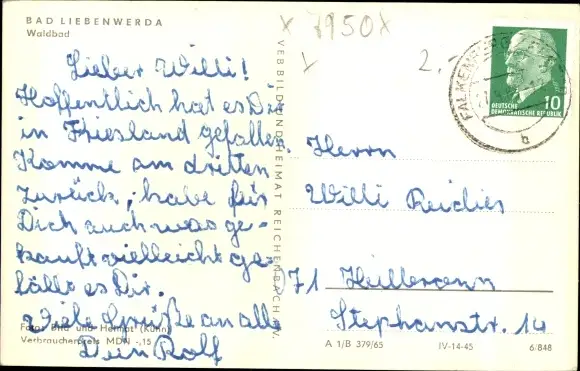 BAD LIEBENWERDA
Waldbad
Lieber Willi!
Hoffentlich hat es Dir
in Friesland gefallen.
Komme am dritten
zurück, habe für
Dich auch was ge-
kauft vielleicht ge-
fällt es Dir.
Viele Grüße an alle
Dein Rolf
Foto: Bild und Heimat (Kühn)
Verbraucherpreis MDN -,15
VEB BILD UND HEIMAT REICHENBACH I. V.
X 7950 X
2.-
FALKENBERG
b
10
DEUTSCHE
DEMOKRATISCHE REPUBLIK
Herrn
Willi
71 Heilbronn
Stephanstr. 14
A 1/B 379/65 IV-14-45 6/848